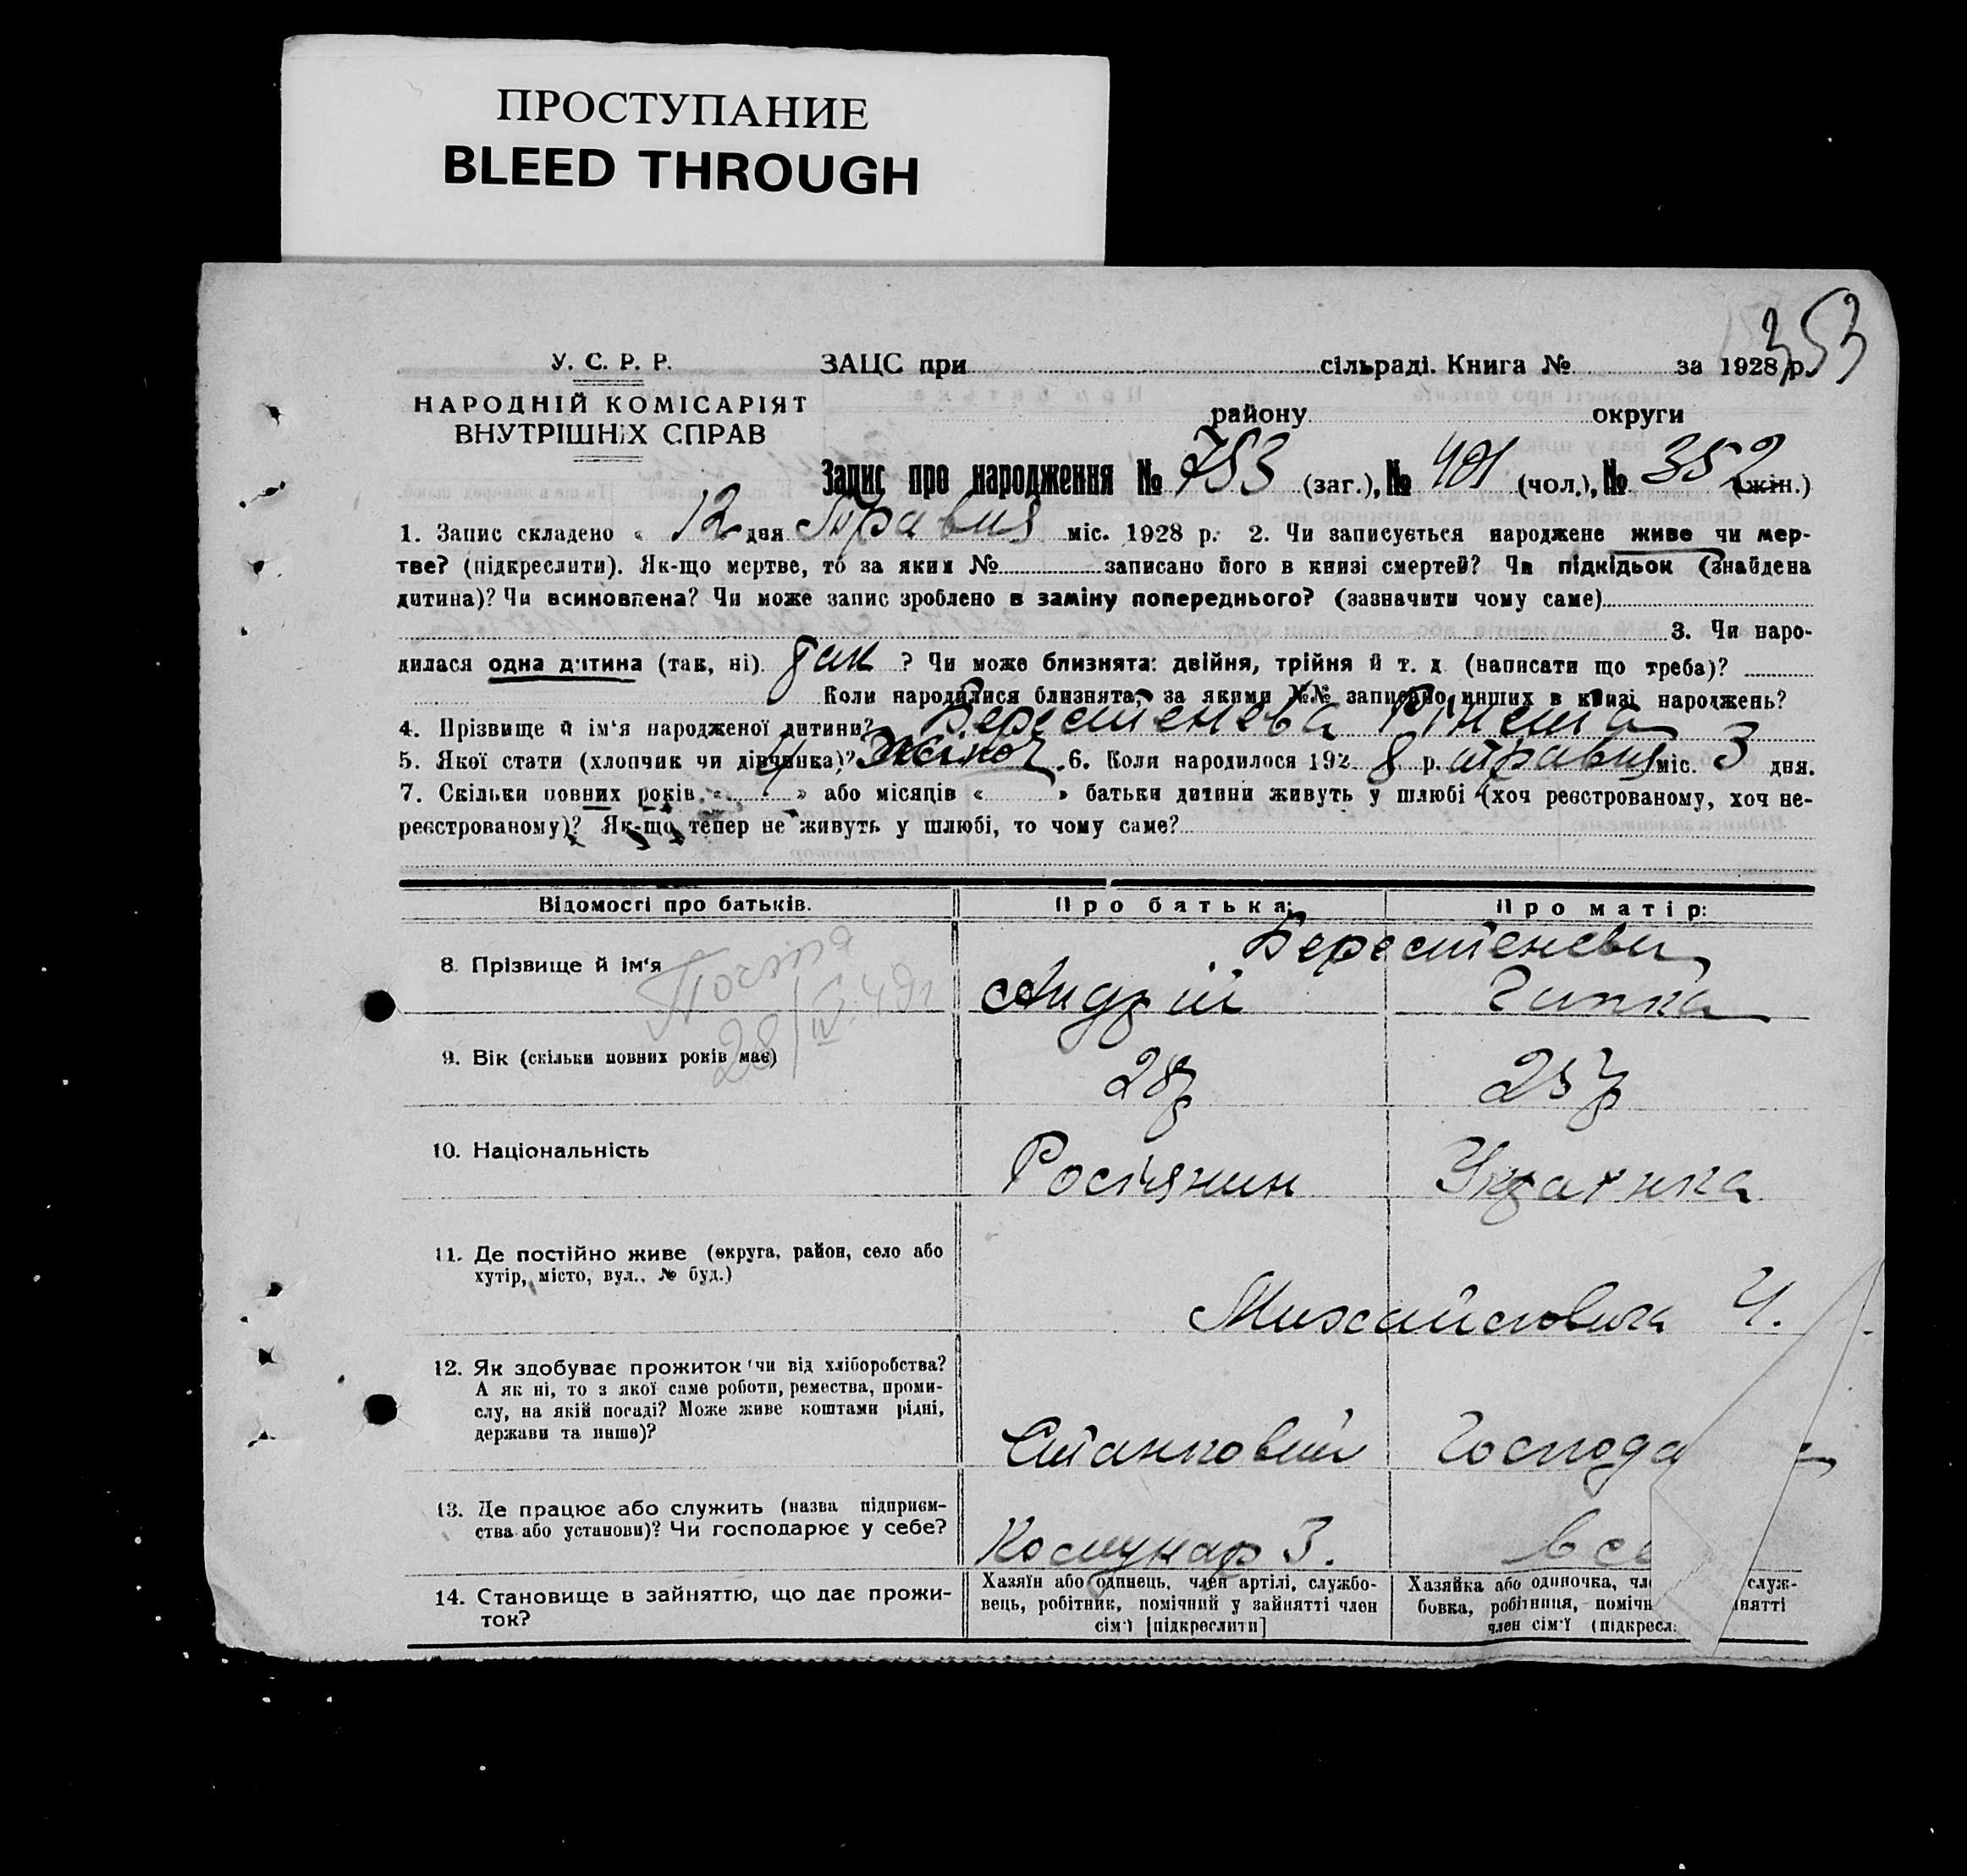 ПРОСТУПАНИЕ
BLEED THROUGH
353
У. С. Р. Р. ЗАЦС при сільраді. Книга № за 1928 р.
НАРОДНІЙ КОМІСАРІЯТ
ВНУТРІШНІХ СПРАВ
району округи
Запис про народження № 753 (заг.), № 401 (чол.), № 352 (жін.)
1. Запис складено « 12 дня Травня міс. 1928 р. 2. Чи записується народжене живе чи мер-
тве? (підкреслити). Як-що мертве, то за яким № записано його в книзі смертей? Чи підкідьок (знайдена
дитина)? Чи всиновлена? Чи може запис зроблено в заміну попереднього? (зазначити чому саме)
3. Чи наро-
дилася одна дитина (так, ні) так ? Чи може близнята: двійня, трійня й т. д. (написати що треба)?
Коли народилися близнята, за якими №№ записано инших в книзі народжень?
4. Прізвище й ім'я народженої дитини? Берестенева Рінета
5. Якої стати (хлопчик чи дівчинка)? Жіноч. 6. Коли народилося 192 8 р. травня міс. 3 дня.
7. Скільки повних років « » або місяців « » батьки дитини живуть у шлюбі (хоч реєстрованому, хоч не-
реєстрованому)? Як-що тепер не живуть у шлюбі, то чому саме?
Відомості про батьків. Про батька: Про матір:
Берестеневи
8. Прізвище й ім'я Андрій Гапка
28/IV-49г
9. Вік (скільки повних років має) 28 р 25 р
10. Національність Росіянин Українка
11. Де постійно живе (округа, район, село або
хутір, місто, вул., № буд.)
4.
12. Як здобуває прожиток чи від хліборобства?
А як ні, то з якої саме роботи, ремества, проми-
слу, на якій посаді? Може живе коштами рідні,
держави та инше)?
Станковий Господа
13. Де працює або служить (назва підприєм-
ства або установи)? Чи господарює у себе?
Комунар З. в се
14. Становище в зайняттю, що дає прожи-
ток?
Хазяїн або одинець, член артілі, службо-
вець, робітник, помічний у зайнятті член
сім'ї [підкреслити]
Хазяйка або одиночка, чл служ-
бовка, робітниця, помічн йнятті
член сім'ї (підкресл